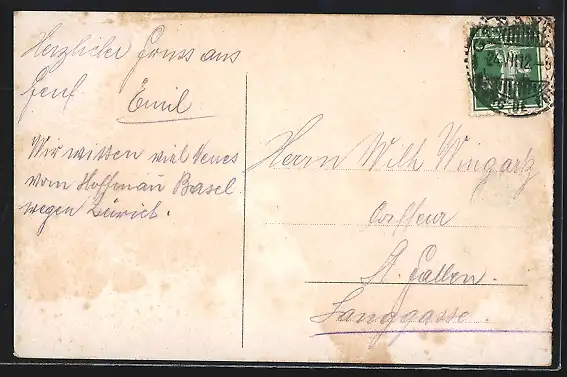 Herzlicher Gruss aus
Genf. Emil
Wir wissen viel Neues
vom Hoffmann Basel
wegen Zürich.
Herrn Wilh. Wingartz
Coiffeur
St. Gallen.
Langgasse.
24.VII.12.-8